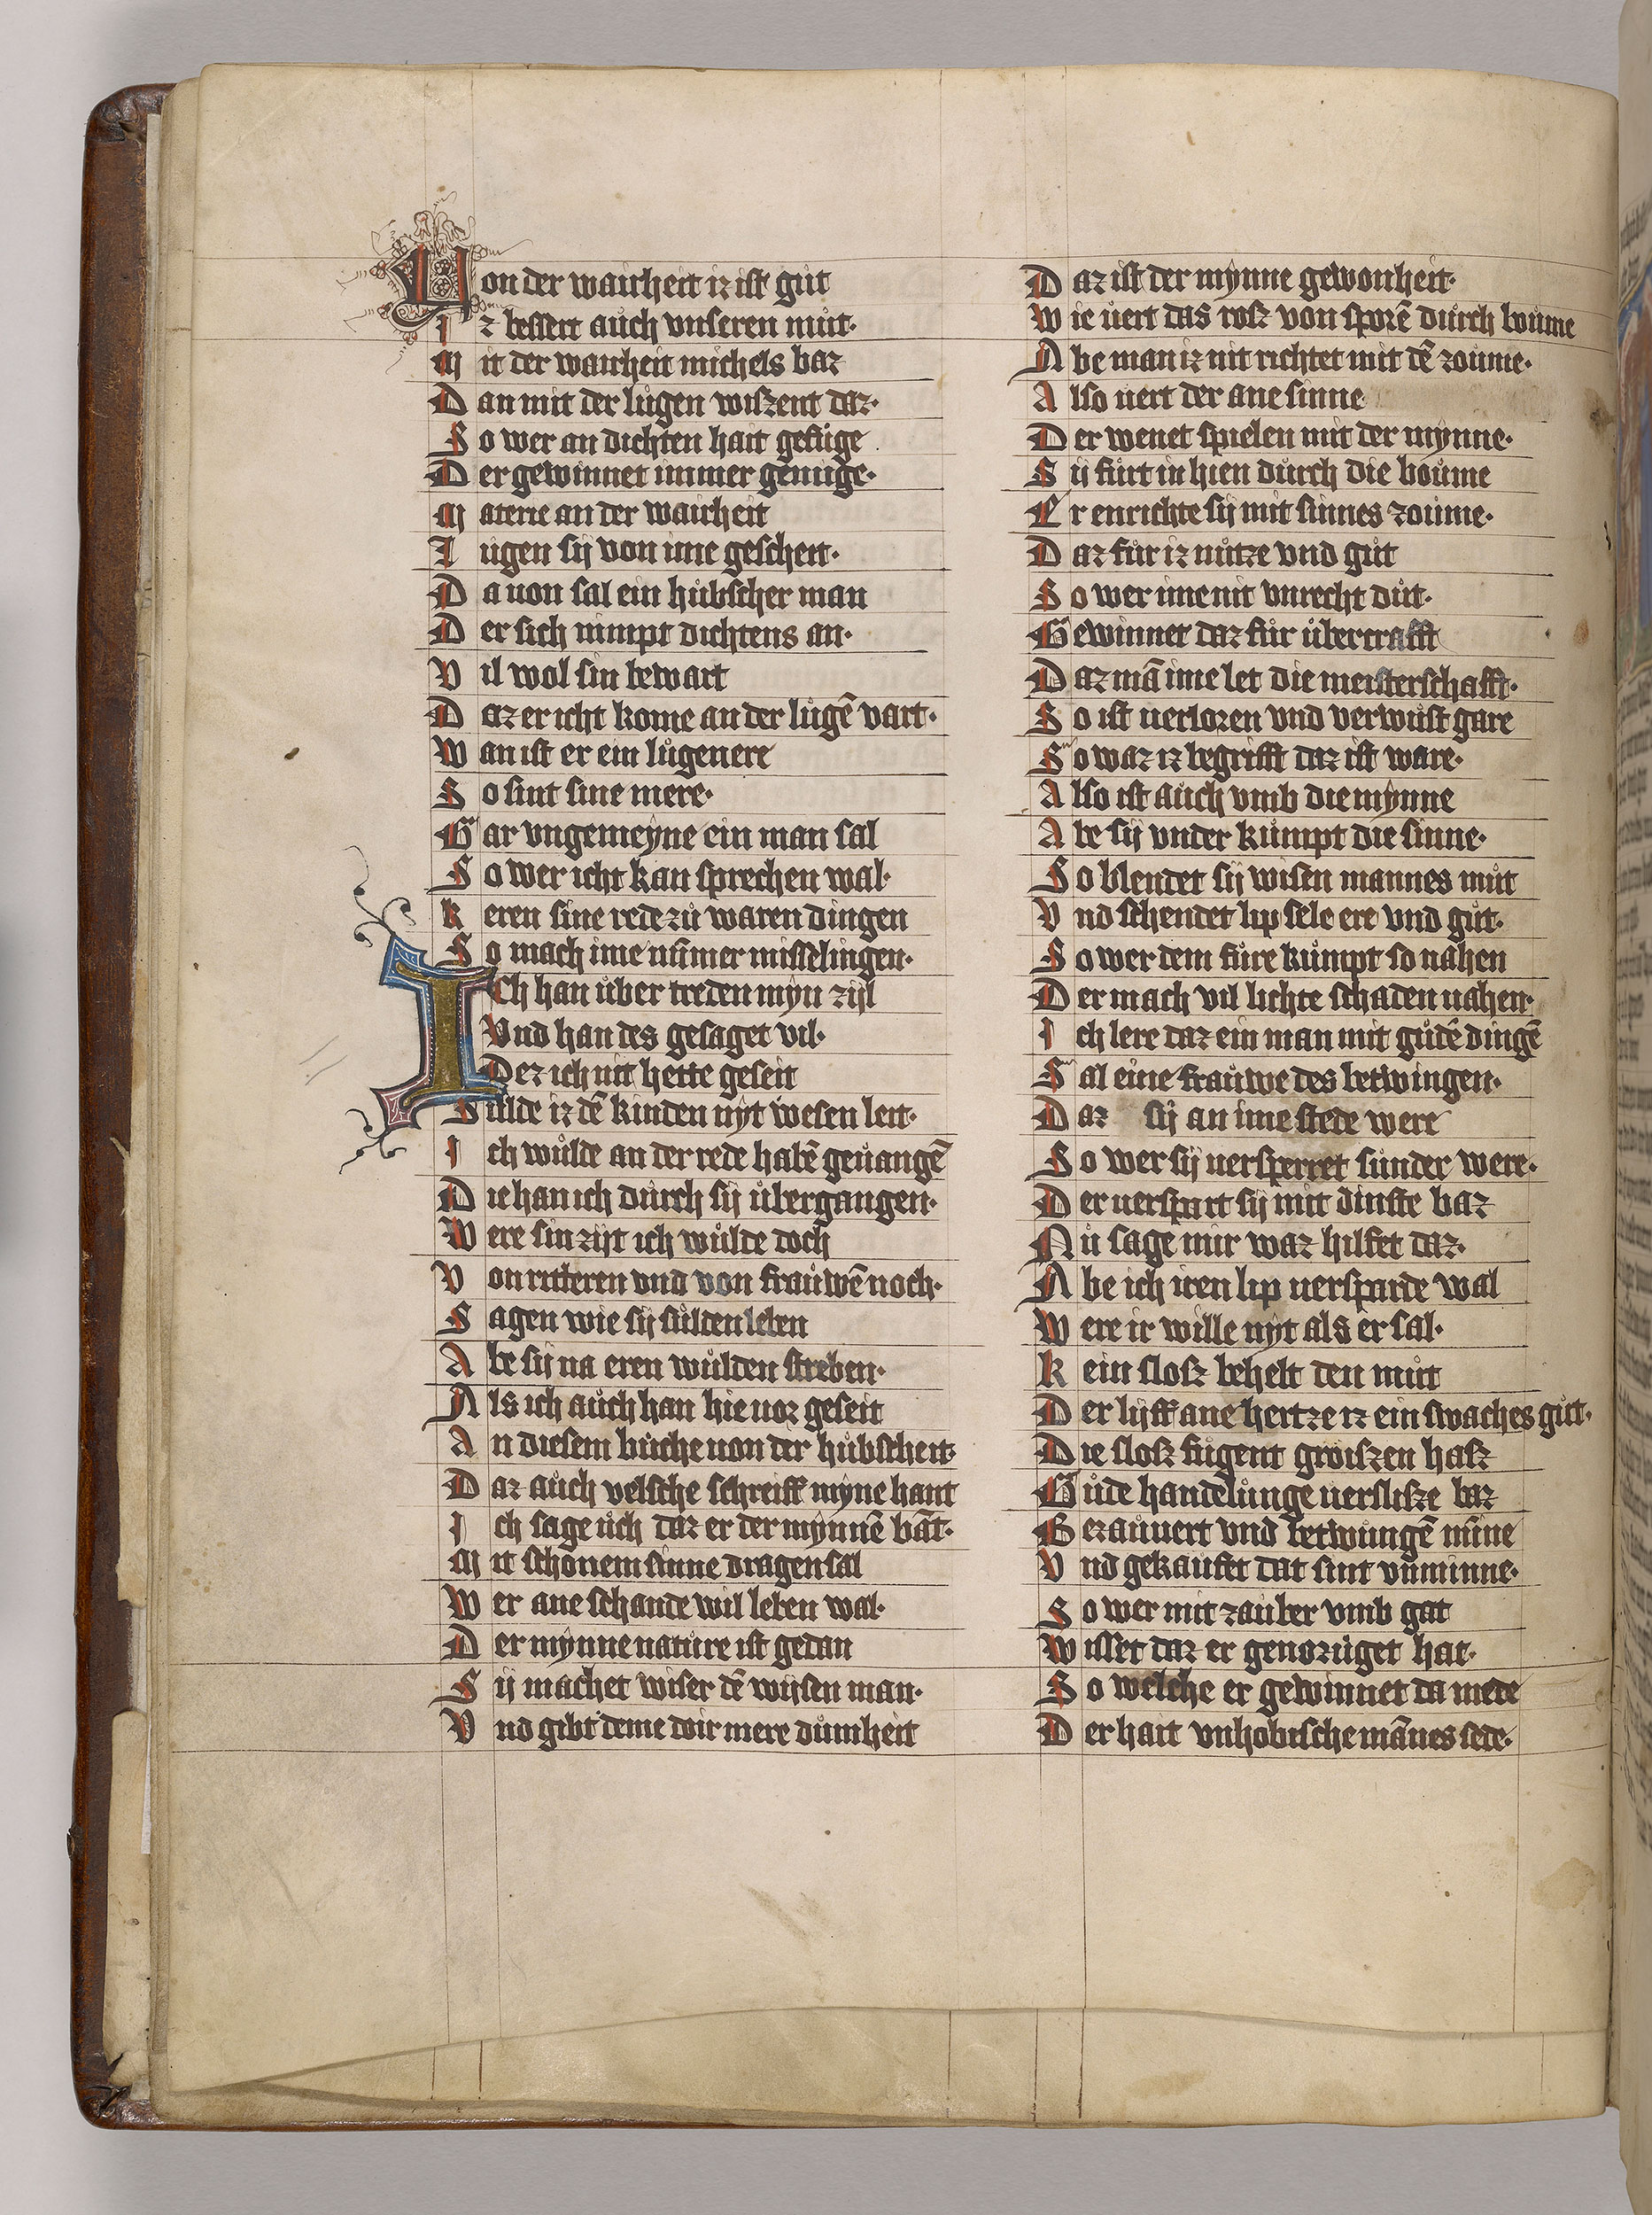 Von der wairheit iz ist gůt
Iz bessert aůch vnseren můt·
Mit der wairheit michels baz
Dan mit der lůgen wiszent daz·
So wer an dichten hait gefůge
Der gewinnet immer genůge·
Materie an der wairheit
Lugen sij von ime gescheit·
Da uon sal ein hůbscher man
Der sich nimpt dichtens an·
Vil wol sin bewart
Daz er icht kome an der lůgē vart·
Wan ist er ein lůgenere
So sint sine mere·
Gar vngemeyne ein man sal
So wer icht kan sprechen wal·
Keren sine rede zů waren dingen
So mach ime nūmer misselingen·
ICh han ůber treden myn zijl
Vnd han des gesaget vil·
Dez ich nit hette geseit
Sulde iz dē kinden nyt wesen leit·
Ich wůlde an der rede habē geůangē
Die han ich důrch sij ůbergangen·
Were sin zijt ich wůlde doch
Von ritteren vnd von fraůwē noch·
Sagen wie sij sůlden leben
Abe sij na eren wůlden streben·
Als ich aůch han hie uor geseit
An diesem bůche uon der hůbscheit·
Daz aůch velsche schreiff myne hant
Ich sage ůch daz er der mynnē bāt·
Mit schonem sinne dragen sal
Wer ane schande wil leben wal·
Der mynne natůre ist gedan
Sij machet wiser dē wijsen man·
Vnd gibt deme doir mere důmheit
Daz ist der mynne gewonheit·
Wie ůert das rosz von sporē důrch boůme
Abe man iz nit richtet mit dē zoume·
Also uert der ane sinne
Der wenet spielen mit der mynne·
Sij fůrt in hien důrch die boůme
Er enrichte sij mit sinnes zoůme·
Daz fůr iz nůtze vnd gůt
So wer ime nit vnrecht důt·
Gewinnet daz fůr ůbercrafft
Daz mā ime let die meisterschafft·
So ist uerlozen vnd verwůst gare
So waz iz begrifft daz ist ware·
Also ist aůch vmb die mynne
Abe sij vnder kůmpt die sinne·
So blendet sij wisen mannes můt
Vnd schendet lip sele ere vnd gůt·
So wer dem fůre kůmpt so nahen
Der mach vil lichte schaden uahen·
Ich lere daz ein man mit gůdē dingē
Sal eine fraůwe des betwingen·
Daz sij an ime stede were
So wer sij uersperret sůnder were·
Der uerspart sij mit dinste baz
Nů sage mir waz hilfet daz·
Abe ich iren lip uersparde wal
Were ir wille nyt als er sal·
Kein slosz behelt den můt
Der lijff ane hertze iz ein swaches gůt·
Die slosz fůgent groiszen hasz
Gůde handelůnge uerslisze baz
Gezaůuert vnd betwůngē mīne
Vnd gekaufet dat sint vnminne·
So wer mit zauber vmb gat
Wisset daz er genozůget hat·
So welche er gewinnet da mede
Der hait vnhobische mānes sede·